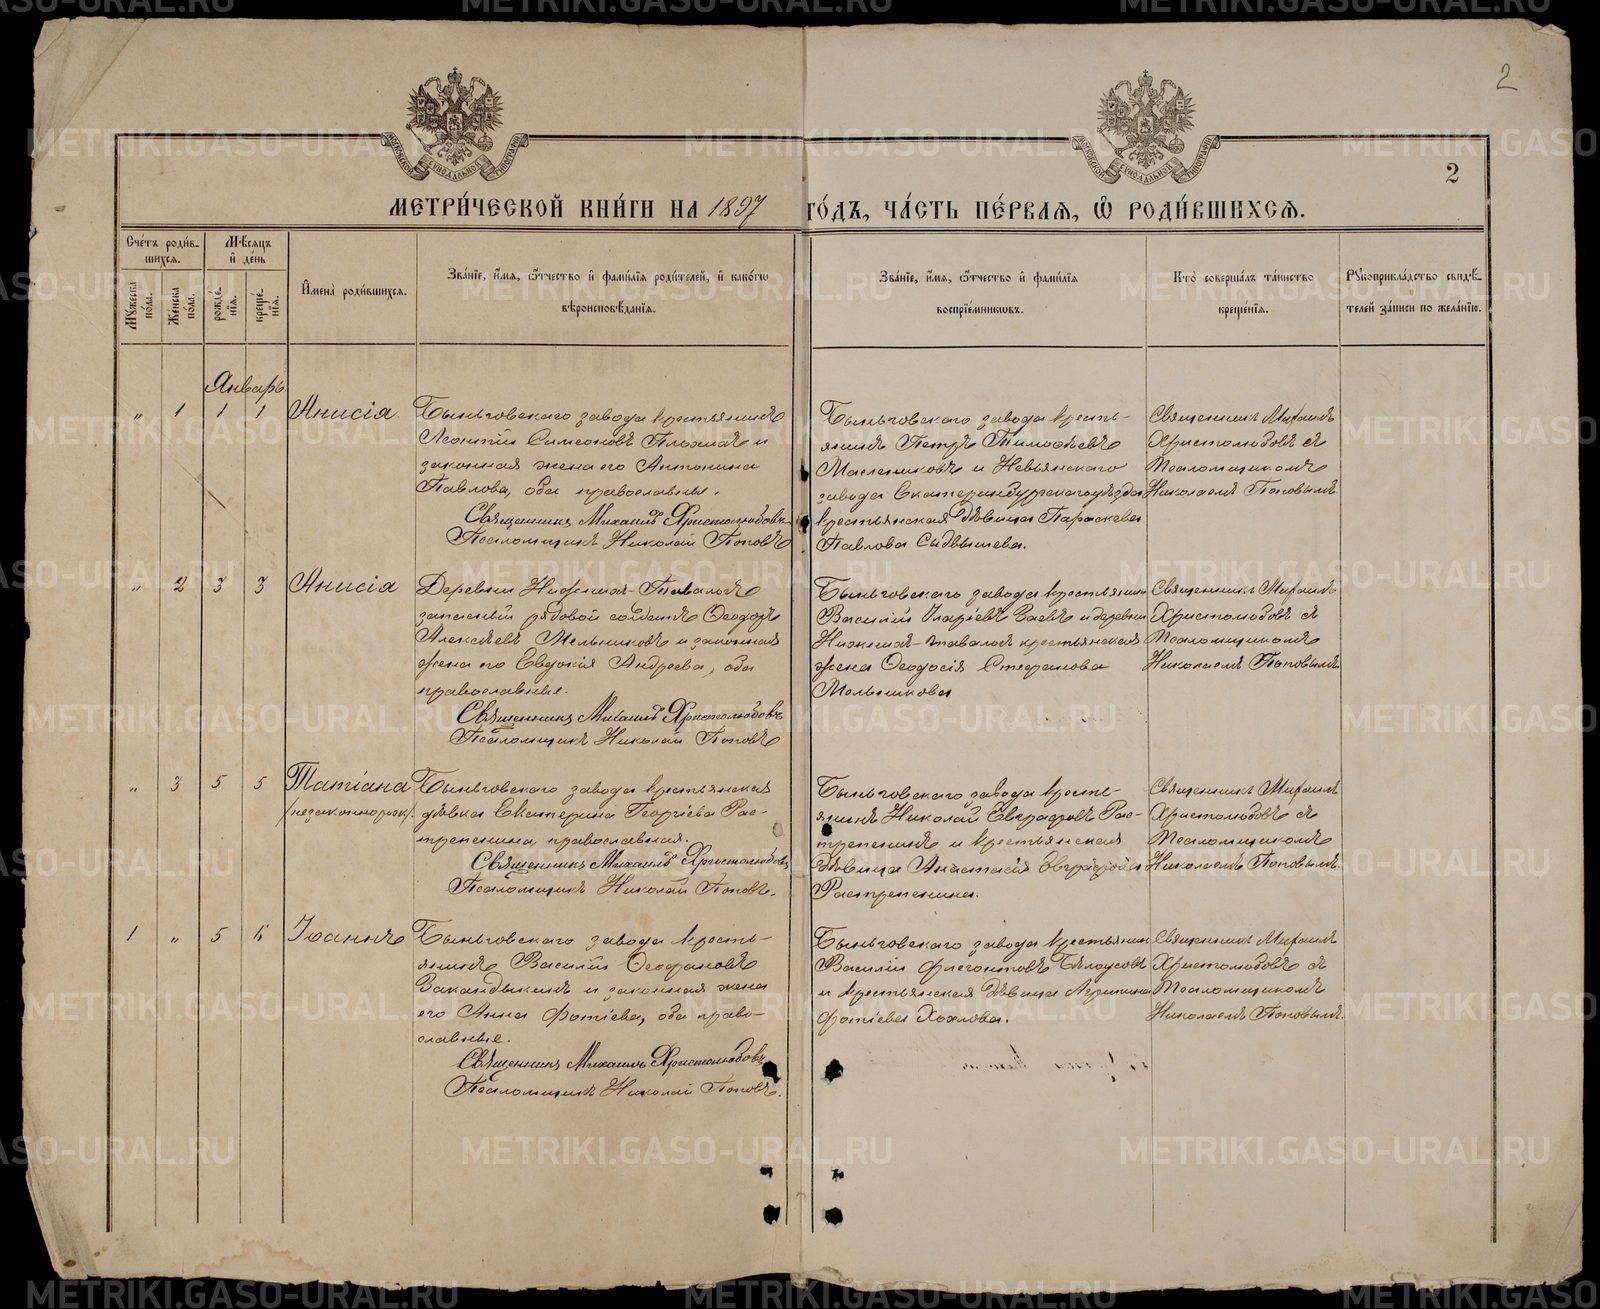 2
2
МЕТРИ́ЧЕСКОЙ КНИ́ГИ НА 1897 ГО́ДЪ, ЧА́СТЬ ПЕ́РВАЯ, Ѡ҆ РОДИ́ВШИХСЯ.
Сче́тъ роди́в-
шихся.
Мѣ́сяцъ
и҆ де́нь
Мꙋ́жеска
по́ла.
Же́нска
по́ла.
рожде́-
нїя.
креще́-
нїя.
И҆мена̀ роди́вшихся.
Зва́нїе, и҆́мя, ѻ҆́тчество и҆ фами́лїя роди́телей, и҆ како́гѡ
вѣроисповѣ́данїя.
Зва́нїе, и҆́мя, ѻ҆́тчество и҆ фами́лїя
воспрїе́мникѡвъ.
Кто̀ соверша́лъ та́инство
креще́нїя.
Рꙋкоприкла́дство свидѣ́-
телей за́писи по жела́нїю.
Январь
„ 1 1 1 Анисія.
Быньговскаго завода крестьянинъ
Леонтій Симеоновъ и
законная жена его Антонина
Павлова, оба православные.
Священникъ Михаилъ Христолюбовъ
Псаломщикъ Николай Поповъ
Быньговскаго завода кресть-
янинъ Петръ Тимоѳеевъ
Маслениковъ и Невьянскаго
завода Екатеринбургскаго уѣзда
крестьянская дѣвица Параскева
Павлова
Священникъ Михаилъ
Христолюбовъ съ
Псаломщикомъ
Николаемъ Поповымъ
„ 2 3 3 Анисія
Деревни Нижнихъ-Тавологъ
запасный рядовой солдатъ Ѳеодоръ
Алексѣевъ Мельниковъ и законная
жена его Евдокія Андреева, оба
православные.
Священникъ Михаилъ Христолюбовъ
Псаломщикъ Николай Поповъ
Быньговскаго завода крестьянинъ
Василій Иларіевъ и деревни
Нижнихъ-тавологъ крестьянская
жена Ѳеодосія Стефанова
Мельникова
Священникъ Михаилъ
Христолюбовъ съ
Псаломщикомъ
Николаемъ Поповымъ
„ 3 5 5 Татіана
/незаконнорож/.
Быньговскаго завода крестьянская
дѣвка Екатерина Георгіева Рас-
трепенина, православная.
Священникъ Михаилъ Христолюбовъ
Псаломщикъ Николай Поповъ.
Быньговскаго завода кресть-
янинъ Николай Евграфовъ Рас-
трепенинъ и крестьянская
дѣвица Анастасія Евграфова
Растрепенина.
Священникъ Михаилъ
Христолюбовъ съ
Псаломщикомъ
Николаемъ Поповымъ
1 „ 5 6 Іоаннъ
Быньговскаго завода кресть-
янинъ Василій Ѳеофановъ
Закандыкинъ и законная жена
его Анна Фотіева, оба право-
славные.
Священникъ Михаилъ Христолюбовъ
Псаломщикъ Николай Поповъ.
Быньговскаго завода крестьянинъ
Василій Флегонтовъ Бѣлоусовъ
и крестьянская дѣвица Агрипина
Фотіева Хохлова.
Священникъ Михаилъ
Христолюбовъ съ
Псаломщикомъ
Николаемъ Поповымъ.
METRIKI.GASO-URAL.RU